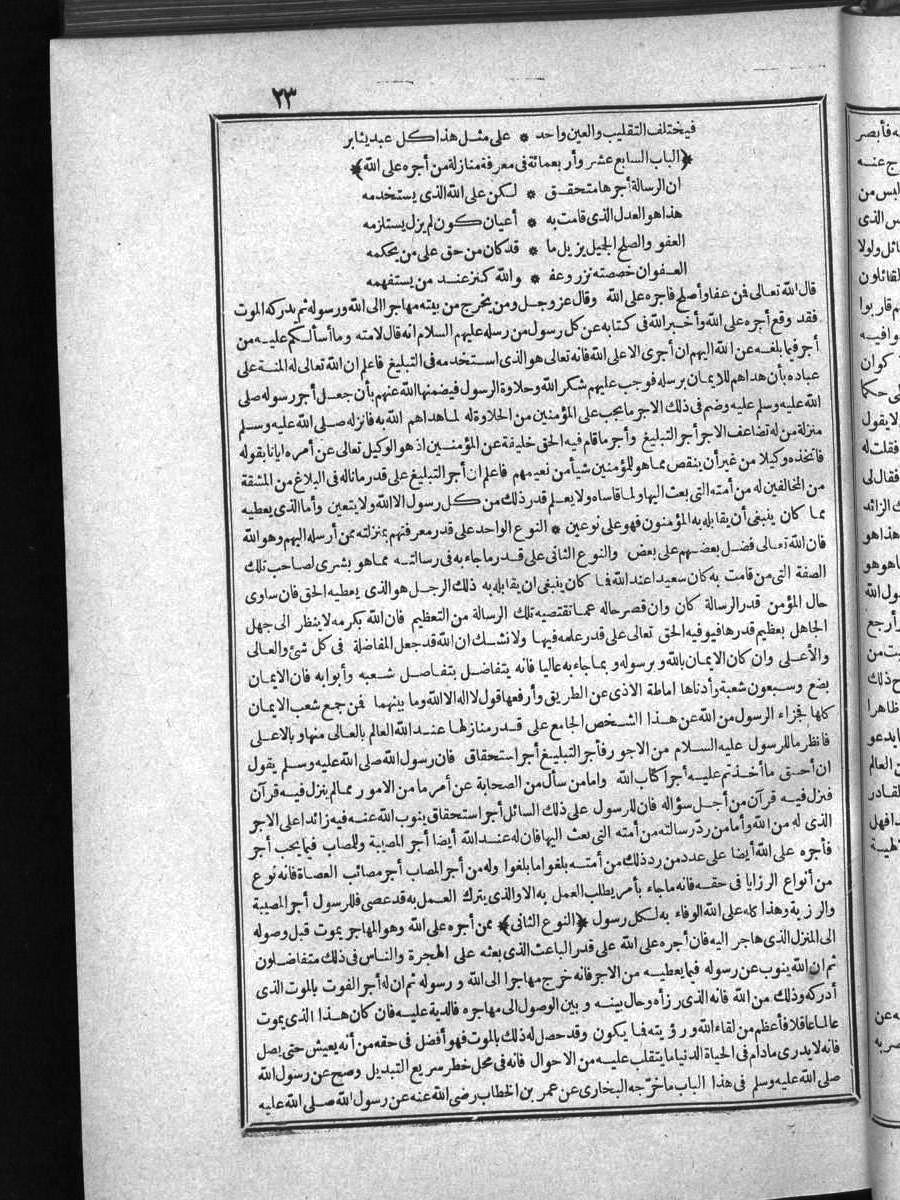 ٢٣
فيختلف التقليب والعين واحد * على مثل هذا كل عبد يثابر
﴿الباب السابع عشر وأربعمائة فى معرفة منازلة من أجره على الله﴾
ان الرسالة أجرها متحقق * لكن على الله الذى يستخدمه
هذا هو العدل الذى قامت به * أعيان كون لم يزل يستلزمه
العفو والصلح الجميل يزيل ما * قد كان من حق على من يحكمه
العفو ان خصصته نزر وعف * والله كنز عند من يستفهمه
قال الله تعالى فمن عفا وأصلح فاجره على الله وقال عز وجل ومن يخرج من بيته مهاجرا الى الله ورسوله ثم يدركه الموت
فقد وقع أجره على الله وأخبر الله فى كتابه عن كل رسول من رسله عليهم السلام انه قال لامته وما أسألكم عليه من
أجر فيما بلغه عن الله اليهم ان أجرى الا على الله فانه تعالى هو الذى استخدمه فى التبليغ فاعلم ان الله تعالى له المنة على
عباده بأن هداهم للايمان برسله فوجب عليهم شكر الله وحلاوة الرسول فيضمنها الله عنهم بأن جعل أجر رسوله صلى
الله عليه وسلم عليه وضم فى ذلك الاجر ما يجب على المؤمنين من الحلاوة له لما هداهم الله به فانزله صلى الله عليه وسلم
منزلة من له تضاعف الاجر أجر التبليغ وأجر ما قام فيه الحق خليفة عن المؤمنين اذ هو الوكيل تعالى عن أمره ايانا بقوله
فاتخذه وكيلا من غير أن ينقص مما هو للمؤمنين شيأ من نعيمهم فاعلم ان أجر التبليغ على قدر ما ناله فى البلاغ من المشقة
من المخالفين له من أمته التى بعث اليها ولما قاساه ولا يعلم قدر ذلك من كل رسول الا الله ولا يتعين وأما الذى يعطيه
مما كان ينبغى أن يقابله به المؤمنون فهو على نوعين * النوع الواحد على قدر معرفتهم بمنزلته ممن أرسله اليهم وهو الله
فان الله تعالى فضل بعضهم على بعض والنوع الثانى على قدر ما جاء به فى رسالته مما هو بشرى لصاحب تلك
الصفة التى من قامت به كان سعيدا عند الله فما كان ينبغى ان يقابله به ذلك الرجل هو الذى يعطيه الحق فان ساوى
حال المؤمن قدر الرسالة كان وان قصر حاله عما تقتضيه تلك الرسالة من التعظيم فان الله بكرمه لا ينظر الى جهل
الجاهل بعظيم قدرها فيوفيه الحق تعالى على قدر علمه فيها ولا نشك ان الله قد جعل المفاضلة فى كل شئ والعالى
والأعلى وان كان الايمان بالله وبرسوله وبما جاء به عاليا فانه يتفاضل بتفاصل شعبه وأبوابه فان الايمان
بضع وسبعون شعبة وأدناها اماطة الاذى عن الطريق وأرفعها قول لا اله الا الله وما بينهما فمن جمع شعب الايمان
كلها فجزاء الرسول من الله عن هذا الشخص الجامع على قدر منازلها عند الله العالم بالعالى منها وبالاعلى
فانظر ما للرسول عليه السلام من الاجور فأجر التبليغ أجر استحقاق فان رسول الله صلى الله عليه وسلم يقول
ان أحق ما أخذتم عليه أجرا كتاب الله واما من سأل من الصحابة عن أمر ما من الامور مما لم ينزل فيه قرآن
فنزل فيه قرآن من أجل سؤاله فان للرسول على ذلك السائل أجر استحقاق ينوب الله عنه فيه زائدا على الاجر
الذى له من الله وأما من رد رسالته من أمته التى بعث اليها فان له عند الله أيضا أجر المصيبة وللمصاب فيما يحب أجر
فأجره على الله أيضا على عدد من رد ذلك من أمته بلغوا ما بلغوا وله من أجر المصاب أجر مصائب العصاة فانه نوع
من أنواع الرزايا فى حقه فانه ما جاء بأمر يطلب العمل به الا والذى يترك العمل به قد عصى فللرسول أجر المصيبة
والرزية وهذا كله على الله الوفاء به لكل رسول ﴿النوع الثانى﴾ ممن أجره على الله وهو المهاجر يموت قبل وصوله
الى المنزل الذى هاجر اليه فان أجره على الله على قدر الباعث الذى بعثه على الهجرة والناس فى ذلك متفاضلون
ثم ان الله ينوب عن رسوله فيما يعطيه من الاجر فانه خرج مهاجرا الى الله ورسوله ثم ان له أجر الفوت بالموت الذى
أدركه وذلك من الله فانه الذى رزأه وحال بينه وبين الوصول الى مهاجره فالدية عليه فان كان هذا الذى يموت
عالما عاقلا فأعظم من لقاء الله ورؤيته فما يكون وقد حصل له ذلك بالموت فهو أفضل فى حقه من أنه يعيش حتى يصل
فانه لا يدرى ما دام فى الحياة الدنيا ما يتقلب عليه من الاحوال فانه فى محل خطر سريع التبديل وصح عن رسول الله
صلى الله عليه وسلم فى هذا الباب ما خرجه البخارى عن عمر بن الخطاب رضى الله عنه عن رسول الله صلى الله عليه